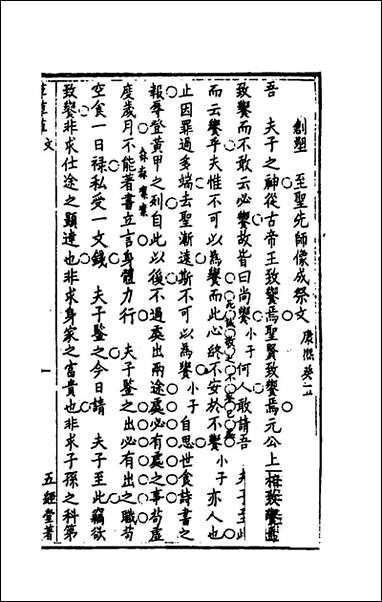 創塑　至聖先師像成祭文　康熙癸亥
吾　夫子之神從古帝王致饗焉聖賢致饗焉元公上相致饗焉
致饗而不敢云必饗故皆曰尚饗小子何人敢請吾　夫子至此
而云饗乎夫惟不可以為饗而此心終不安於不饗小子亦人也
止因罪過多端去聖漸遠斯不可以為饗小子自思世食詩書之
報辱登黃甲之列自此以後不過處出兩途處必有處之事苟虛
度歲月不能著書立言身體力行　夫子鑒之出必有出之職苟
空食一日祿私受一文錢　夫子鑒之今日請　夫子至此竊欲
致饗非求仕途之顯達也非求身家之富貴也非求子孫之科第
文
一
五經堂著